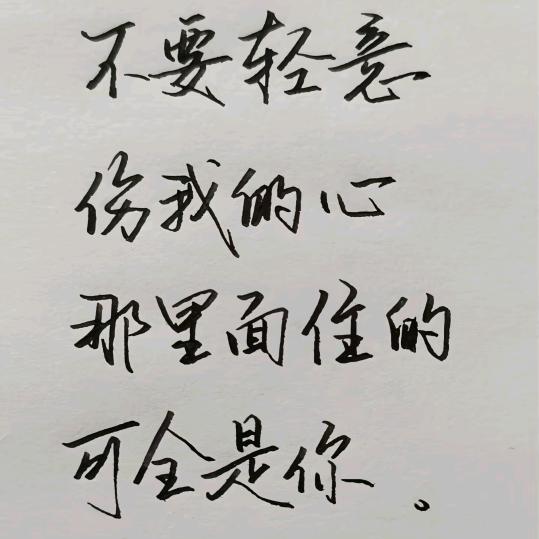 不要轻意
伤我的心
那里面住的
可全是你。